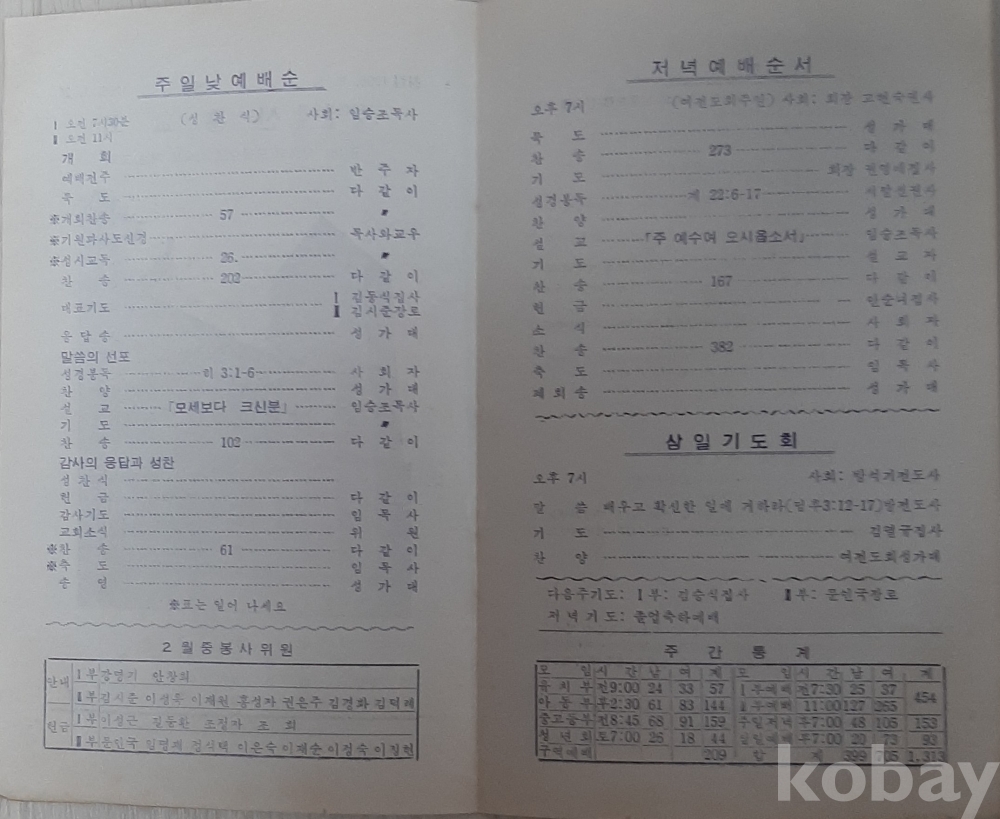 주일낮예배순
(성찬식) 사회: 임승조목사
Ⅰ 오전 7시30분
Ⅱ 오전 11시
개 회
예배전주 반 주 자
묵 도 다 같 이
※개회찬송 57 〃
※기원과사도신경 목사와교우
※성시교독 26. 〃
찬 송 202 다 같 이
대표기도 Ⅰ 김동식집사
Ⅱ 김시준장로
응 답 송 성 가 대
말씀의 선포
성경봉독 히 3:1-6 사 회 자
찬 양 성 가 대
설 교 「모세보다 크신분」 임승조목사
기 도 〃
찬 송 102 다 같 이
감사의 응답과 성찬
성 찬 식
헌 금 다 같 이
감사기도 임 목 사
교회소식 위 원
※찬 송 61 다 같 이
※축 도 임 목 사
송 영 성 가 대
※표는 일어 나세요
2월중봉사위원
안내 Ⅰ부 안창회
Ⅱ부김시준 이성옥 이재원 홍성자 권은주 김경화 김덕례
헌금 Ⅰ부이성근 조정자 조 회
Ⅱ부문인국 이은숙 이재순 이정숙
저녁예배순서
오후 7시 (여전도회주일) 사회: 회장 고현숙권사
묵 도 성 가 대
찬 송 273 다 같 이
기 도 회장
성경봉독 계 22:6-17
찬 양 성 가 대
설 교 「주 예수여 오시옵소서」 임승조목사
기 도 설 교 자
찬 송 167 다 같 이
헌 금
소 식 사 회 자
찬 송 382 다 같 이
축 도 임 목 사
폐 회 송 성 가 대
삼일기도회
오후 7시 사회: 방석기전도사
말 씀 배우고 확신한 일에 거하라(딤후3:12-17)방전도사
기 도
찬 양 여전도회성가대
다음주기도: Ⅰ부: 김승식집사 Ⅱ부: 문인국장로
저녁기도: 졸업축하예배
주 간 통 계
모 임 시 간 남 여 계 모 임 시 간 남 여 계
유 치 부 전9:00 24 33 57 Ⅰ부예배 전7:30 25 37 454
아 동 부 후2:30 61 83 144 Ⅱ부예배 11:00 127 265
중고등부 전8:45 68 91 159 주일저녁 후7:00 48 105 153
청 년 회 토7:00 26 18 44 삼일예배 후7:00 20 73 93
구역예배 209 합 계 399 705 1,313
kobay